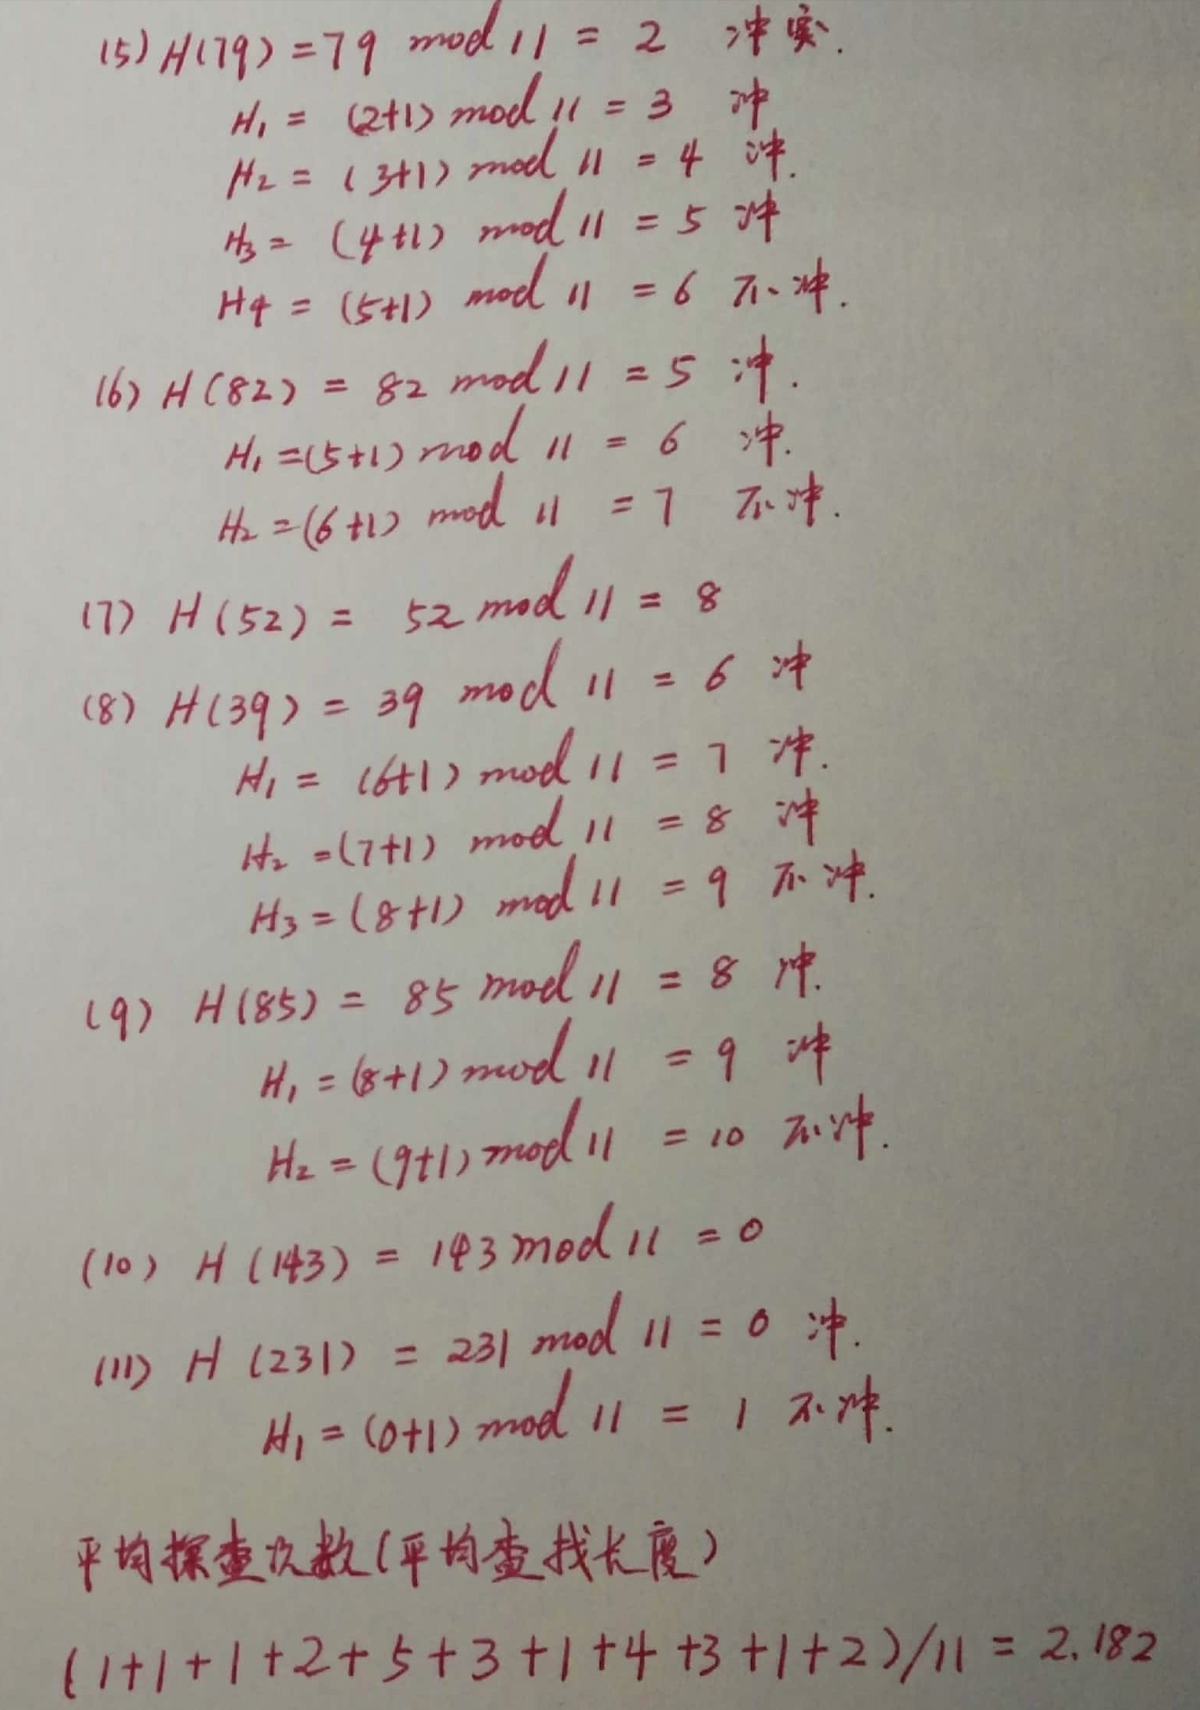 (5) H(79) = 79 mod 11 = 2 冲突.
H₁ = (2+1) mod 11 = 3 冲
H₂ = (3+1) mod 11 = 4 冲.
H₃ = (4+1) mod 11 = 5 冲
H4 = (5+1) mod 11 = 6 不冲.
(6) H(82) = 82 mod 11 = 5 冲.
H₁ = (5+1) mod 11 = 6 冲.
H₂ = (6+1) mod 11 = 7 不冲.
(7) H(52) = 52 mod 11 = 8
(8) H(39) = 39 mod 11 = 6 冲
H₁ = (6+1) mod 11 = 7 冲.
H₂ = (7+1) mod 11 = 8 冲
H₃ = (8+1) mod 11 = 9 不冲.
(9) H(85) = 85 mod 11 = 8 冲.
H₁ = (8+1) mod 11 = 9 冲
H₂ = (9+1) mod 11 = 10 不冲.
(10) H(143) = 143 mod 11 = 0
(11) H(231) = 231 mod 11 = 0 冲.
H₁ = (0+1) mod 11 = 1 不冲.
平均探查次数(平均查找长度)
(1+1+1+2+5+3+1+4+3+1+2)/11 = 2.182